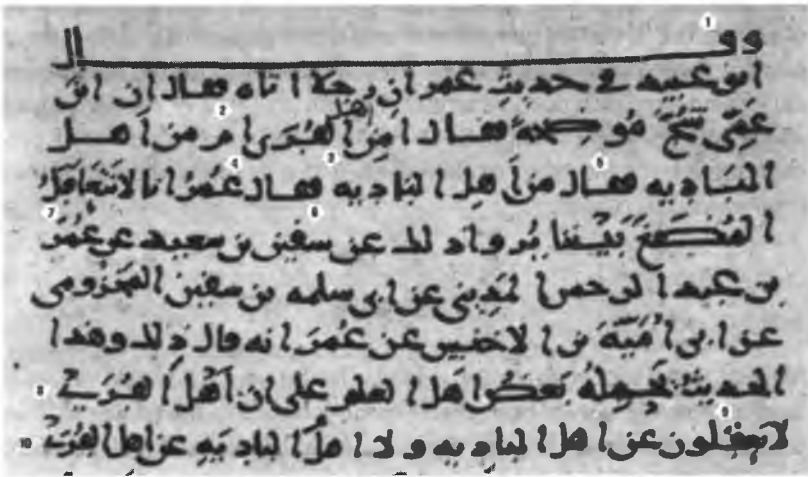 وقال
ابو عبيد في حديث عمر ان رجلا اتاه فقال ان ابن
عمّي شُجّ مُوضِحة فقال امِن اهل القُرَى ام من اهل
الباديه فقال من اهل الباديه فقال عُمرُ انا لا نتعاقلُ
المُضَغَ بَيْننا يُروا ذلك عن سفين بن سعيد عن عُمَرَ
بن عبد الرحمن المَدِيني عن ابي سلمه بن سفين المخزومي
عن ابي اُمَيَّةَ بن الاخنس عن عُمَرَ انه قال ذلك وهذا
الحديث يَحمِلهُ بَعضُ اهل العلم على ان اَهْلَ القُرَى
لا يعقلون عن اهل الباديه ولا اهلُ الباديَهِ عن اهل القُرَى